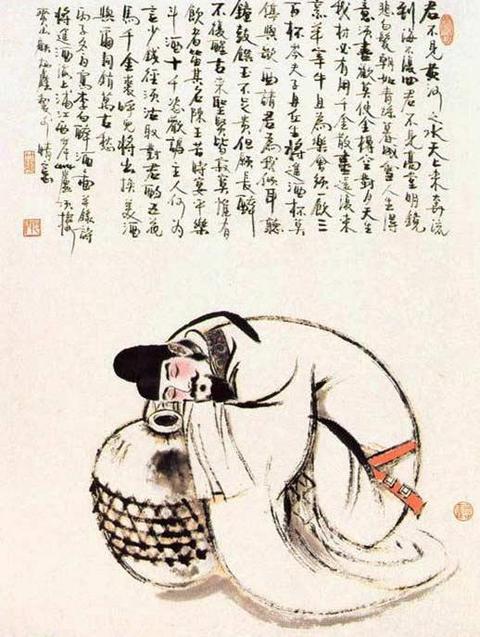 君不見黃河之水天上來奔流
到海不復回君不見高堂明鏡
悲白髮朝如青絲暮成雪人生得
意須盡歡莫使金樽空對月天生
我材必有用千金散盡還復來
烹羊宰牛且為樂會須飲三
百杯岑夫子丹丘生將進酒杯莫
停歌曲請君為我傾耳聽
鐘鼓饌玉不足貴但願長醉
不復醒古來聖賢皆寂寞惟有
飲者留其名陳王昔時宴平樂
斗酒十千恣歡謔主人何為
言少錢徑須沽取對君酌五花
馬千金裘呼兒將出換美酒
與爾同銷萬古愁
丙子冬月寫李白醉酒圖並錄詩
將進酒